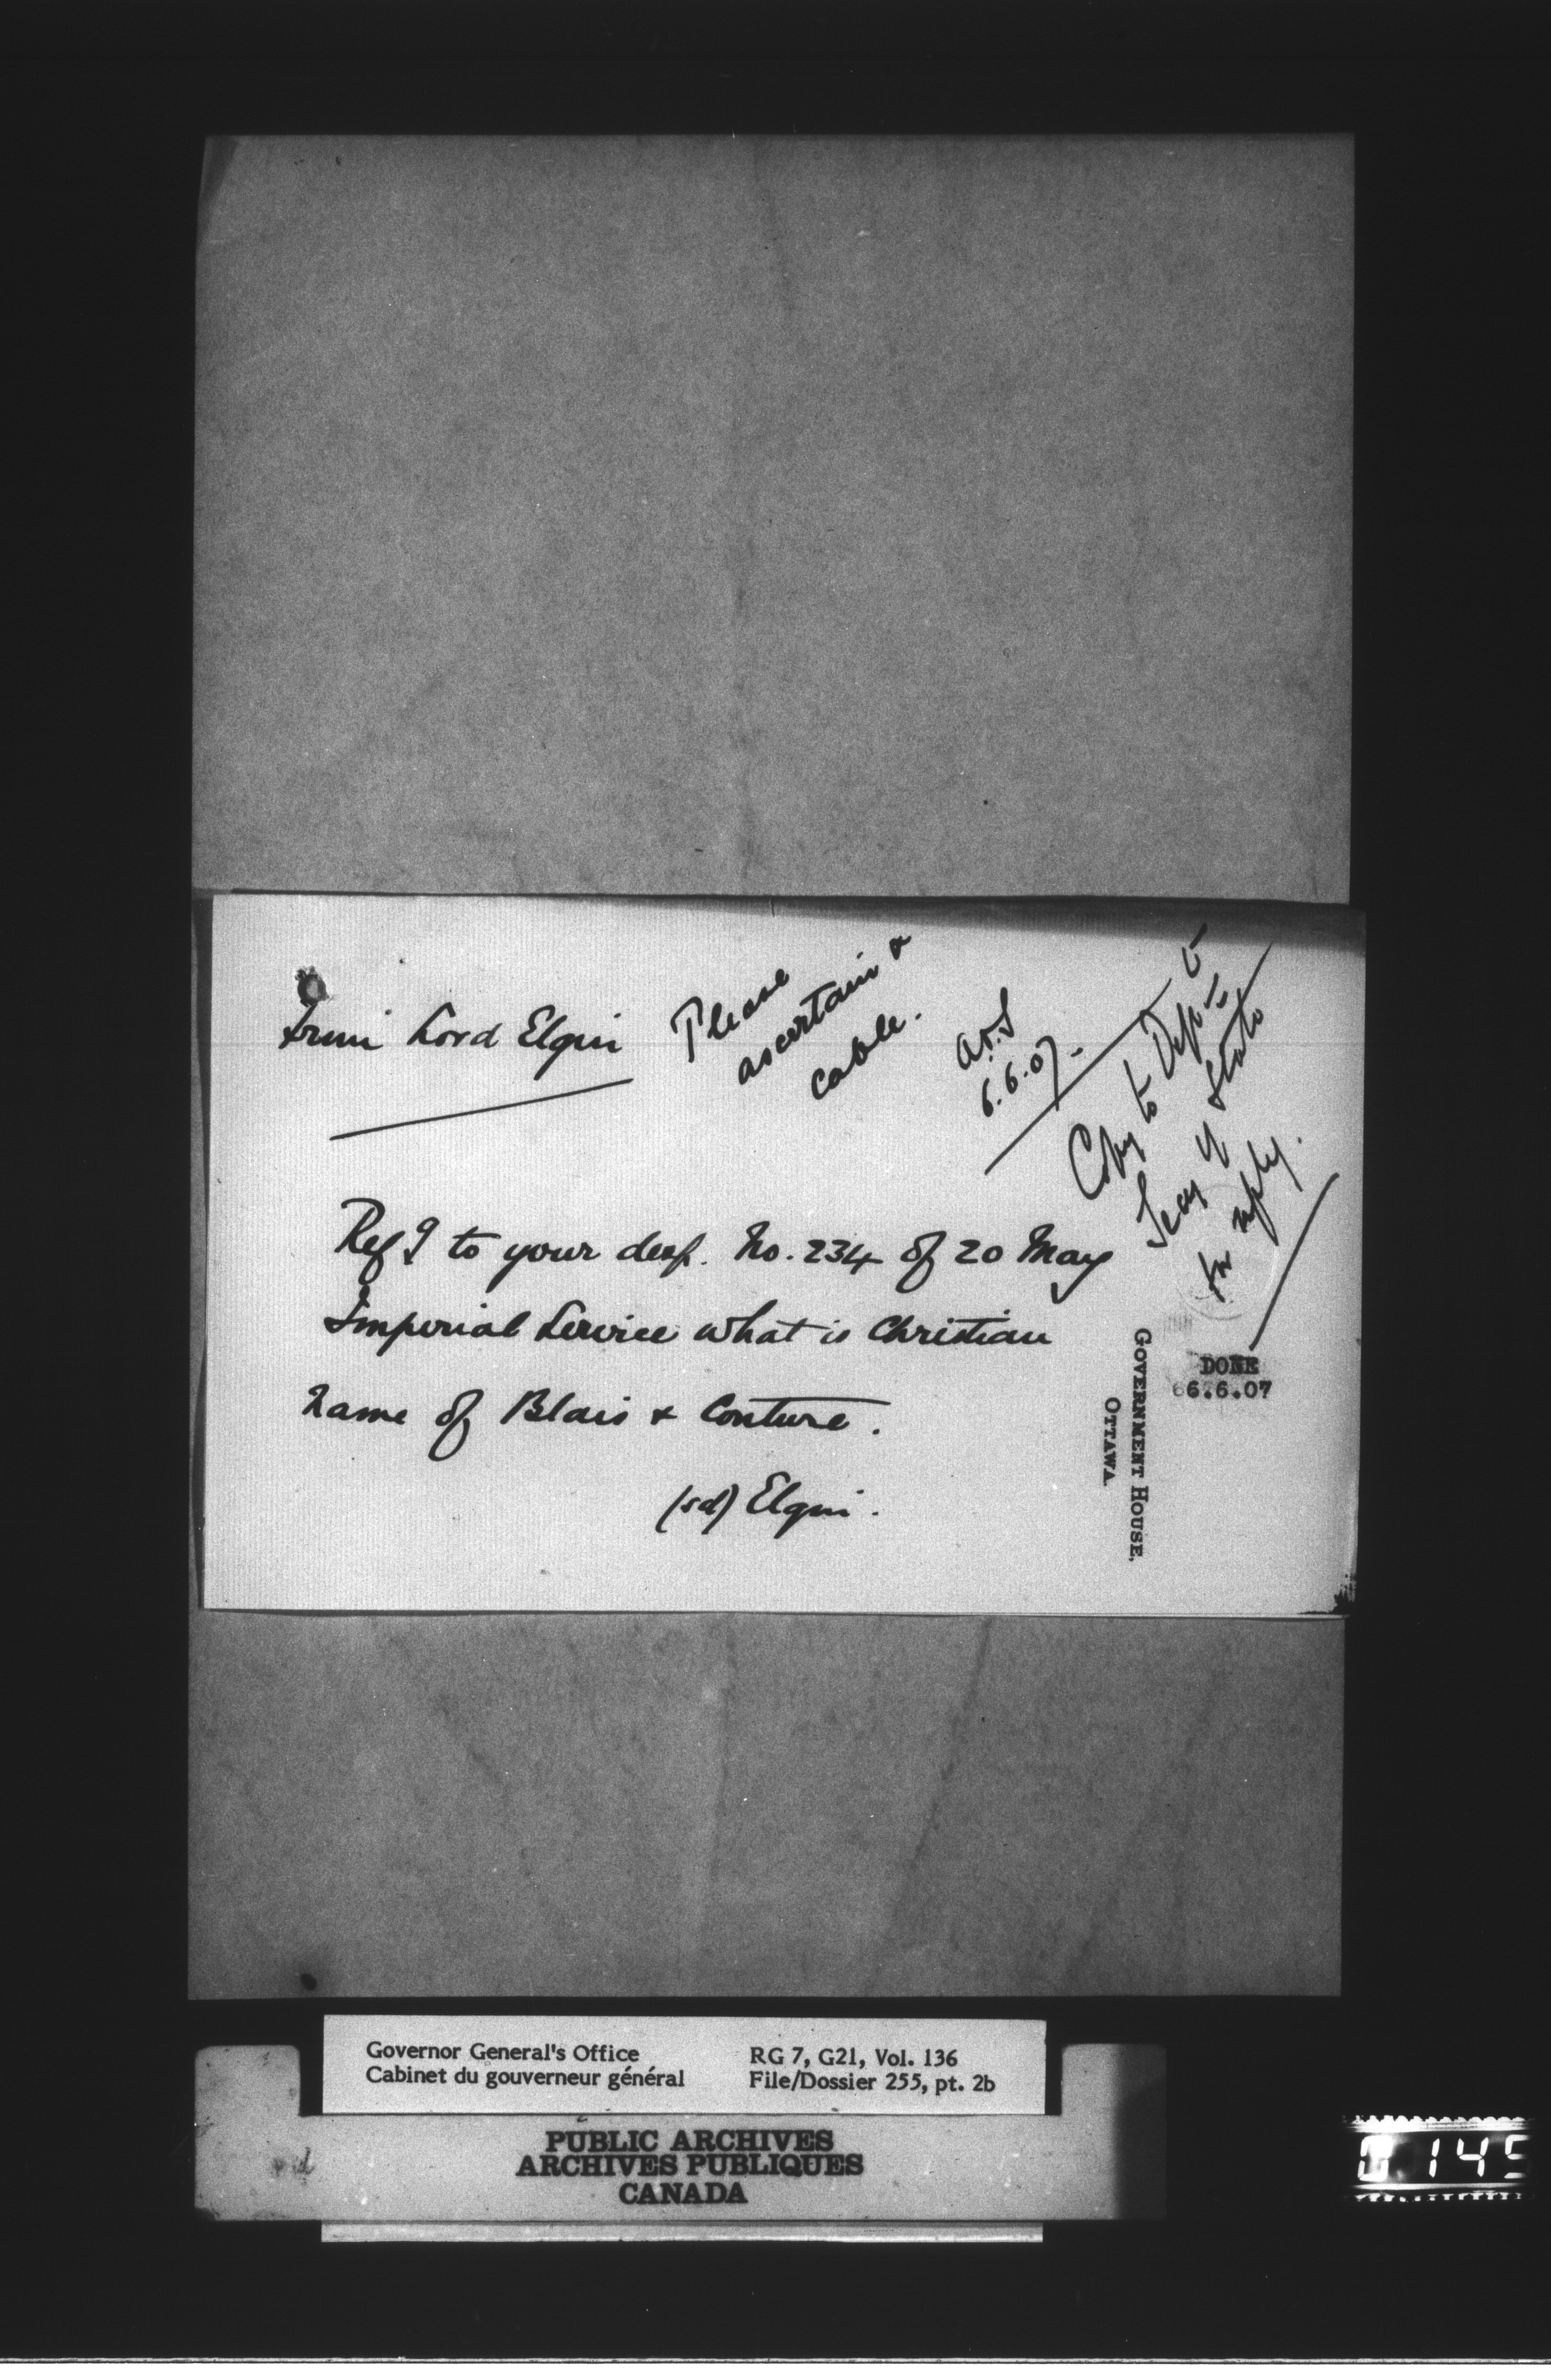 From Lord Elgin
Please
ascertain &
cable.
6.6.07.
Copy to Dep. to
Secy of State
for reply.
Refg to your desp. No. 234 of 20 May
Imperial Service what is Christian
name of Blais & Couture.
(sd) Elgin.
DONE
6.6.07
GOVERNMENT HOUSE,
OTTAWA.
Governor General's Office
Cabinet du gouverneur général
RG 7, G21, Vol. 136
File/Dossier 255, pt. 2b
PUBLIC ARCHIVES
ARCHIVES PUBLIQUES
CANADA
145